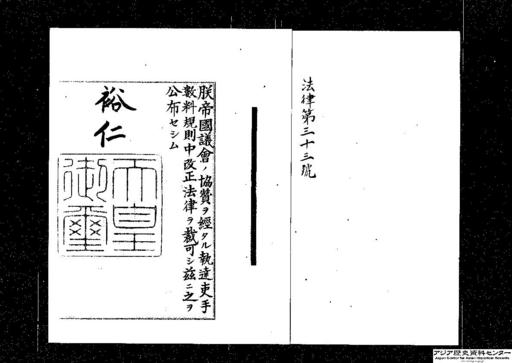 法律第三十三號
朕帝國議會ノ協贊ヲ經タル執達吏手
數料規則中改正法律ヲ裁可シ茲ニ之ヲ
公布セシム
裕仁
天皇
御璽
アジア歴史資料センター
Japan Center for Asian Historical Records